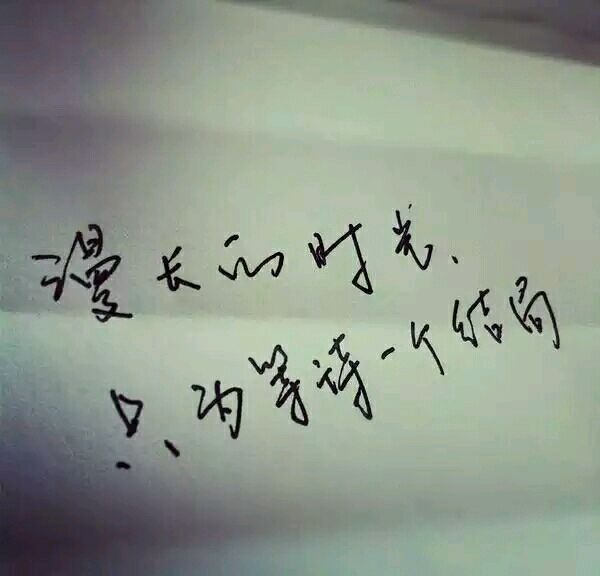 漫长的时光、
只为等待一个结局